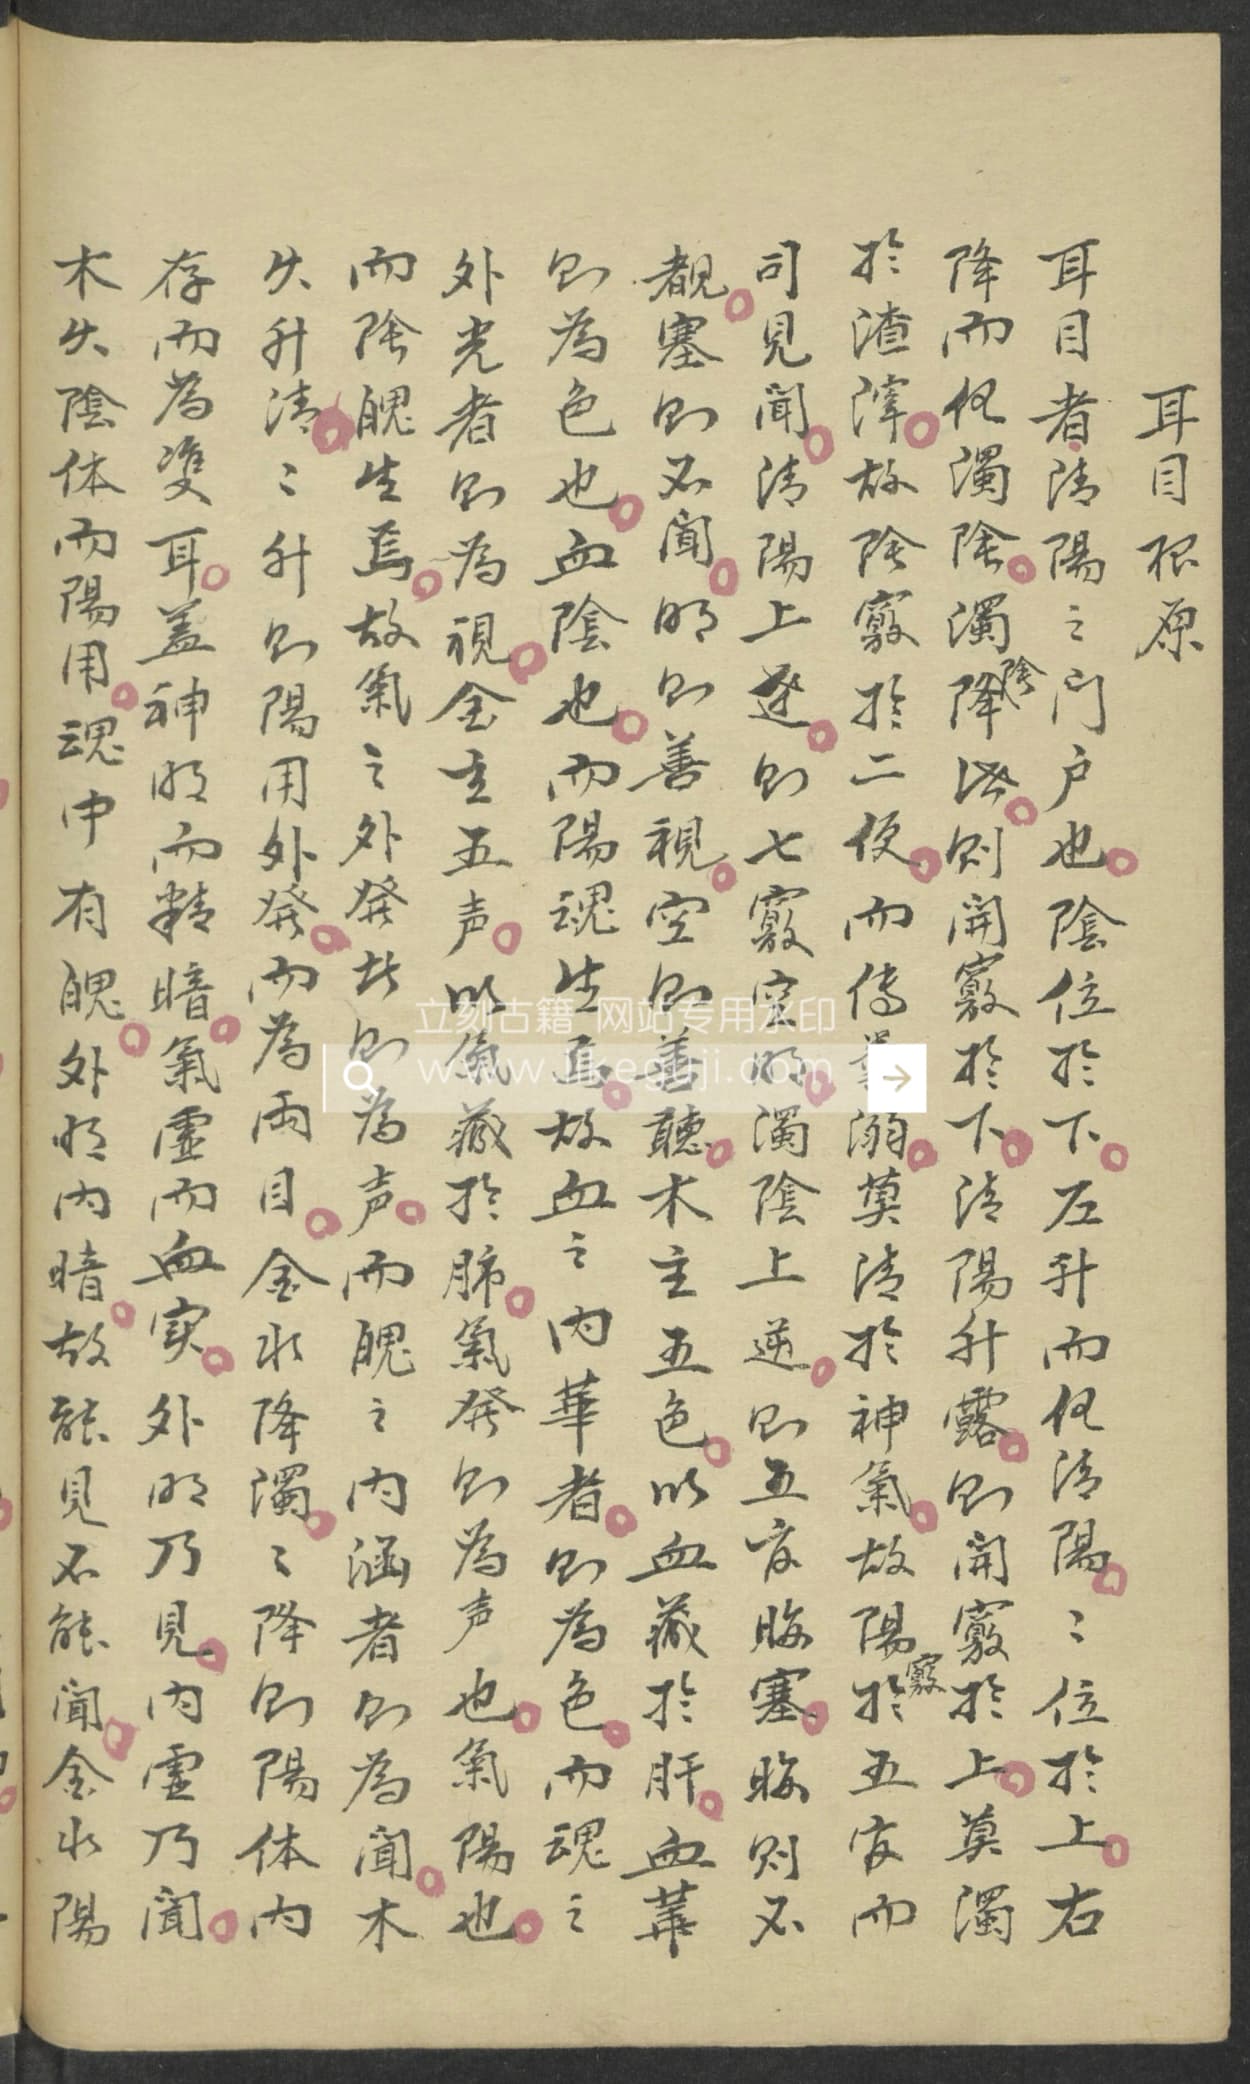 耳目根原
耳目者清陽之門户也陰位於下左升而化清陽〻位於上右
降而化濁陰濁陰降則開竅於下清陽升露則開竅於上莫濁
於渣滓故陰竅於二便而傳糞溺莫清於神氣故陽竅於五官而
司見聞清陽上達則七竅空明濁陰上逆則五官晦塞晦則不
覩塞則不聞明則善視空則善聽木主五色以血藏於肝血華
則為色也血陰也而陽魂生焉故血之内華者則為色而魂之
外光者則為視金主五声以氣藏於肺氣發則為声也氣陽也
而陰魄生焉故氣之外發者則為声而魄之内涵者則為聞木
火升清〻升則陽用外發而為両目金水降濁〻降則陽体内
存而為双耳蓋神明而精暗氣虚而血实外明乃見内虚乃聞
木火陰体而陽用魂中有魄外明内暗故能見不能聞金水陽
立刻古籍 网站专用水印
www.likeguji.com